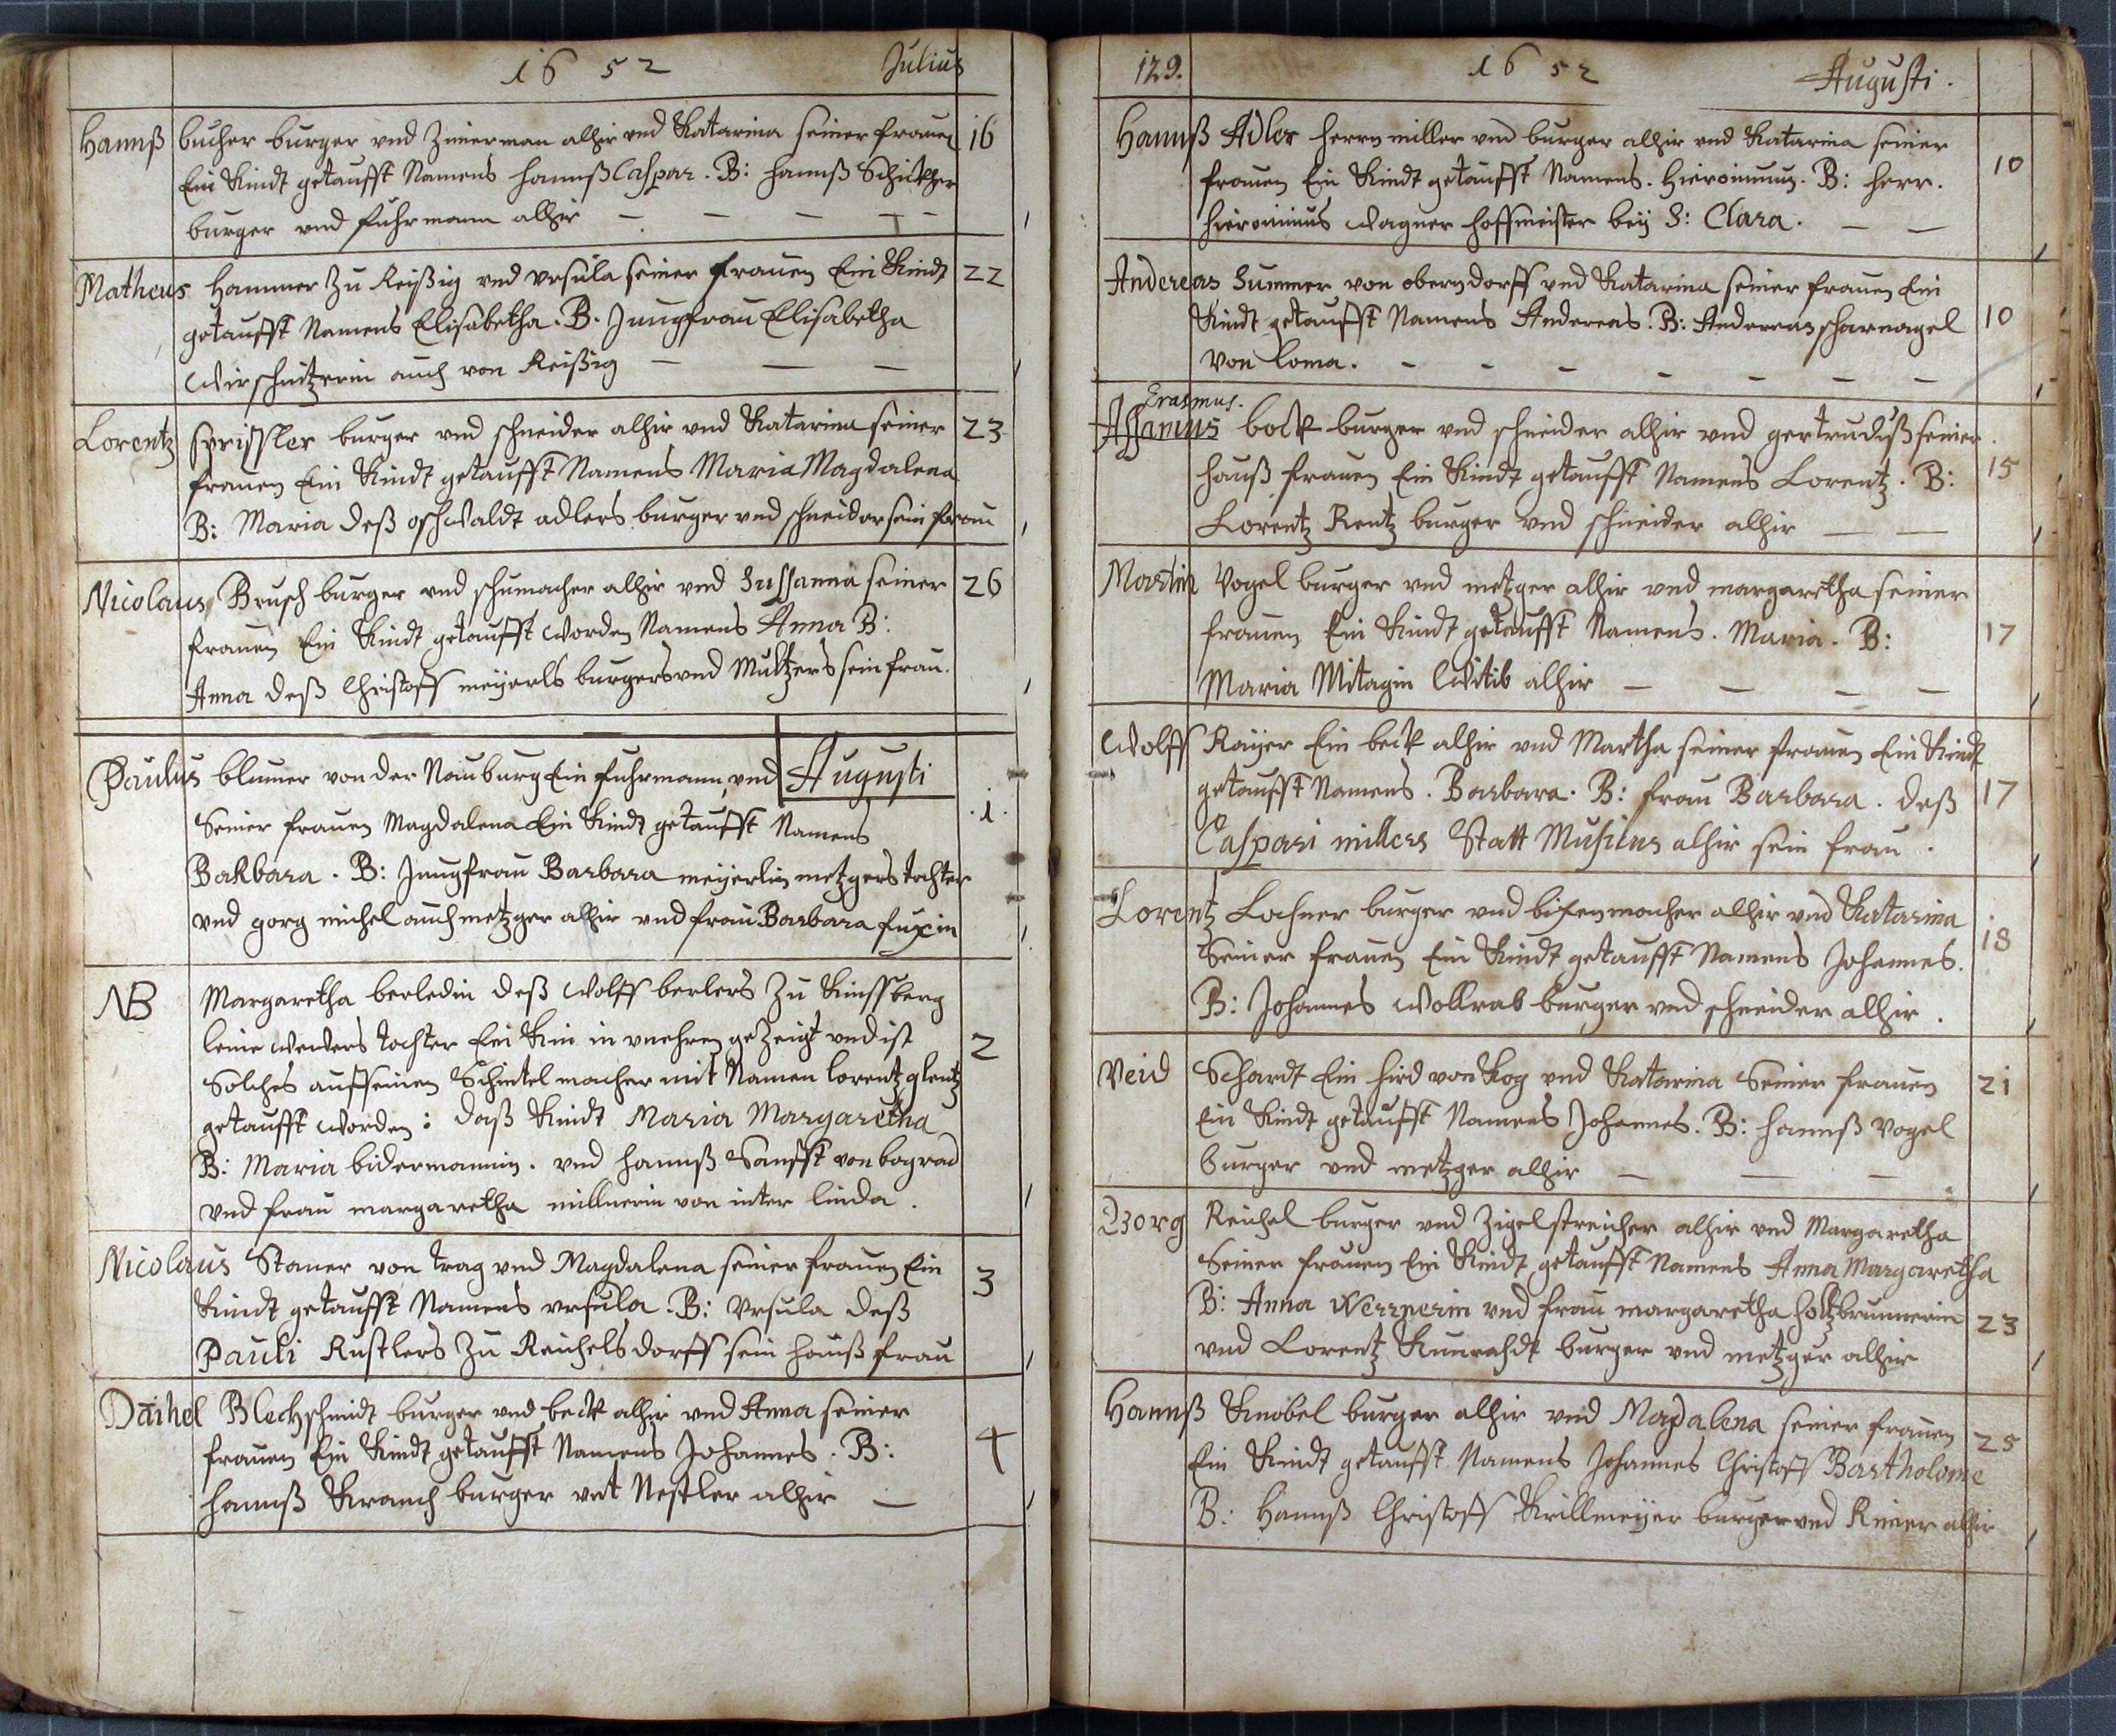 1652 Julius
Hannß bucher burger vnd Zimerman alhir vnd Katarina seiner frauen 16
Ein Kindt getaufft Namens Hannß Caspar. B: Hannß Schickher
burger vnd fuhrmann alhir
Matheus Hammer Zu Reißig vnd vrsula seiner frauen Ein Kindt 22
getaufft Namens Elisabetha. B. Jungfrau Elisabetha
Wirschnitzerin auch von Reißig
Lorentz sprissler burger vnd schneider alhir vnd Katarina seiner 23
frauen Ein Kindt getaufft Namens Maria Magdalena
B: Maria deß oschwaldt adlers burger vnd schneider sein frau
Nicolaus Brusch burger vnd schumacher alhir vnd Sussanna seiner 26
frauen Ein Kindt getaufft worden Namens Anna B:
Anna deß Christoff meyerls burgers vnd Multzers sein frau.
Paulus blumer von der Nauburg Ein fuhrmann, vnd Augusti
Seiner frauen Magdalena Ein Kindt getaufft Namens .1.
Bakbara. B: Jungfrau Barbara meyerlin metzgers tochter
vnd gorg michel auch metzger alhir vnd frau Barbara fuxin
NB Margaretha berledin deß Wolff berlers Zu Kinssberg
leine webers tochter Ein Kin in vnehren geZeigt vnd ist 2
Solches auff seinen Schintel macher mit Namen lorentz glentz
getaufft worden: daß Kindt Maria Margaretha
B: Maria bidermannin. vnd Hannß Sanfft von bograd
vnd frau margaretha millnerin von inter linda.
Nicolaus Staner von trag vnd Magdalena seiner frauen Ein 3
Kindt getaufft Namens vrsula. B: Vrsula deß
Pauli Rustlers Zu Reichelsdorff sein hauß frau
Daihel Bleckschmidt burger vnd beck alhir vnd Anna seiner
frauen Ein Kindt getaufft Namens Johannes. B: 4
Hannß Kranch burger vnt Nestler alhir
129. 1652 Augusti.
Hannß Adler herrn miller vnd burger alhir vnd Katarina seiner
frauen Ein Kindt getaufft Namens. Hieronimus. B: Herr. 10
Hieronimus Wagner Hoffmeister bey S: Clara.
Andereas Summer von oberndorff vnd Katarina seiner frauen Ein
Kindt getaufft Namens Andereas. B: Andereas scharnagel 10
von Loma.
Erasmus.
Assamus bock burger vnd schneider alhir vnd gertrudiß seiner
hauß frauen Ein Kindt getaufft Namens Lorentz. B: 15
Lorentz Rentz burger vnd schneider alhir
Martin Vogel burger vnd metzger alhir vnd margaretha seiner
frauen Ein Kindt getaufft Namens. Maria. B: 17
Maria Mitagin Witib alhir
Wolff Rayer Ein beck alhir vnd Martha seiner frauen Ein Kindt
getaufft Namens. Barbara. B: frau Barbara. deß 17
Caspari millers Statt Musicus alhir sein frau.
Lorentz Lochner burger vnd bixenmacher alhir vnd Katarina
Seiner frauen Ein Kindt getaufft Namens Johannes. 18
B: Johannes Wollrab burger vnd schneider alhir.
Veid Schardt Ein hird von Kog vnd Katarina Seiner frauen 21
Ein Kindt getaufft Namens Johannes. B: Hannß Vogel
burger vnd metzger alhir
Georg Reichel burger vnd Zigelstreicher alhir vnd Margaretha
Seiner frauen Ein Kindt getaufft Namens Anna Margaretha
B: Anna Wernerin vnd frau margaretha holtzbrunnerin 23
vnd Lorentz Kunrahdt burger vnd metzger alhir
Hannß Knobel burger alhir vnd Magdalena seiner frauen 25
Ein Kindt getaufft Namens Johannes Christoff Bartholome
B: Hannß Christoff Krillmeyer burger vnd Riemer alhir